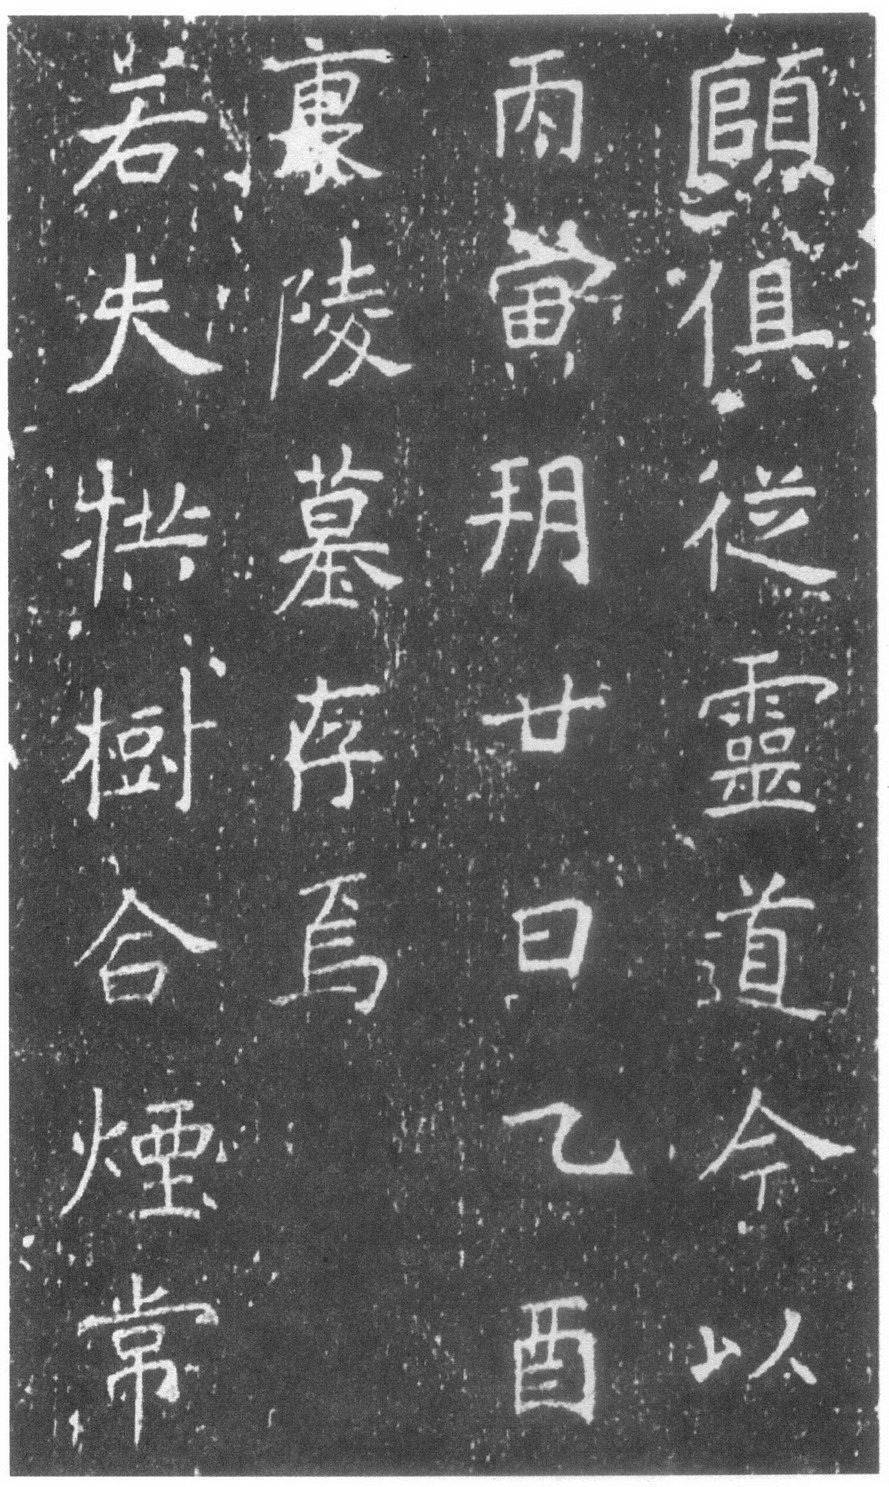 俱從靈道今以
丙寅朔廿日乙酉
陵墓存焉
若夫栱樹合煙常